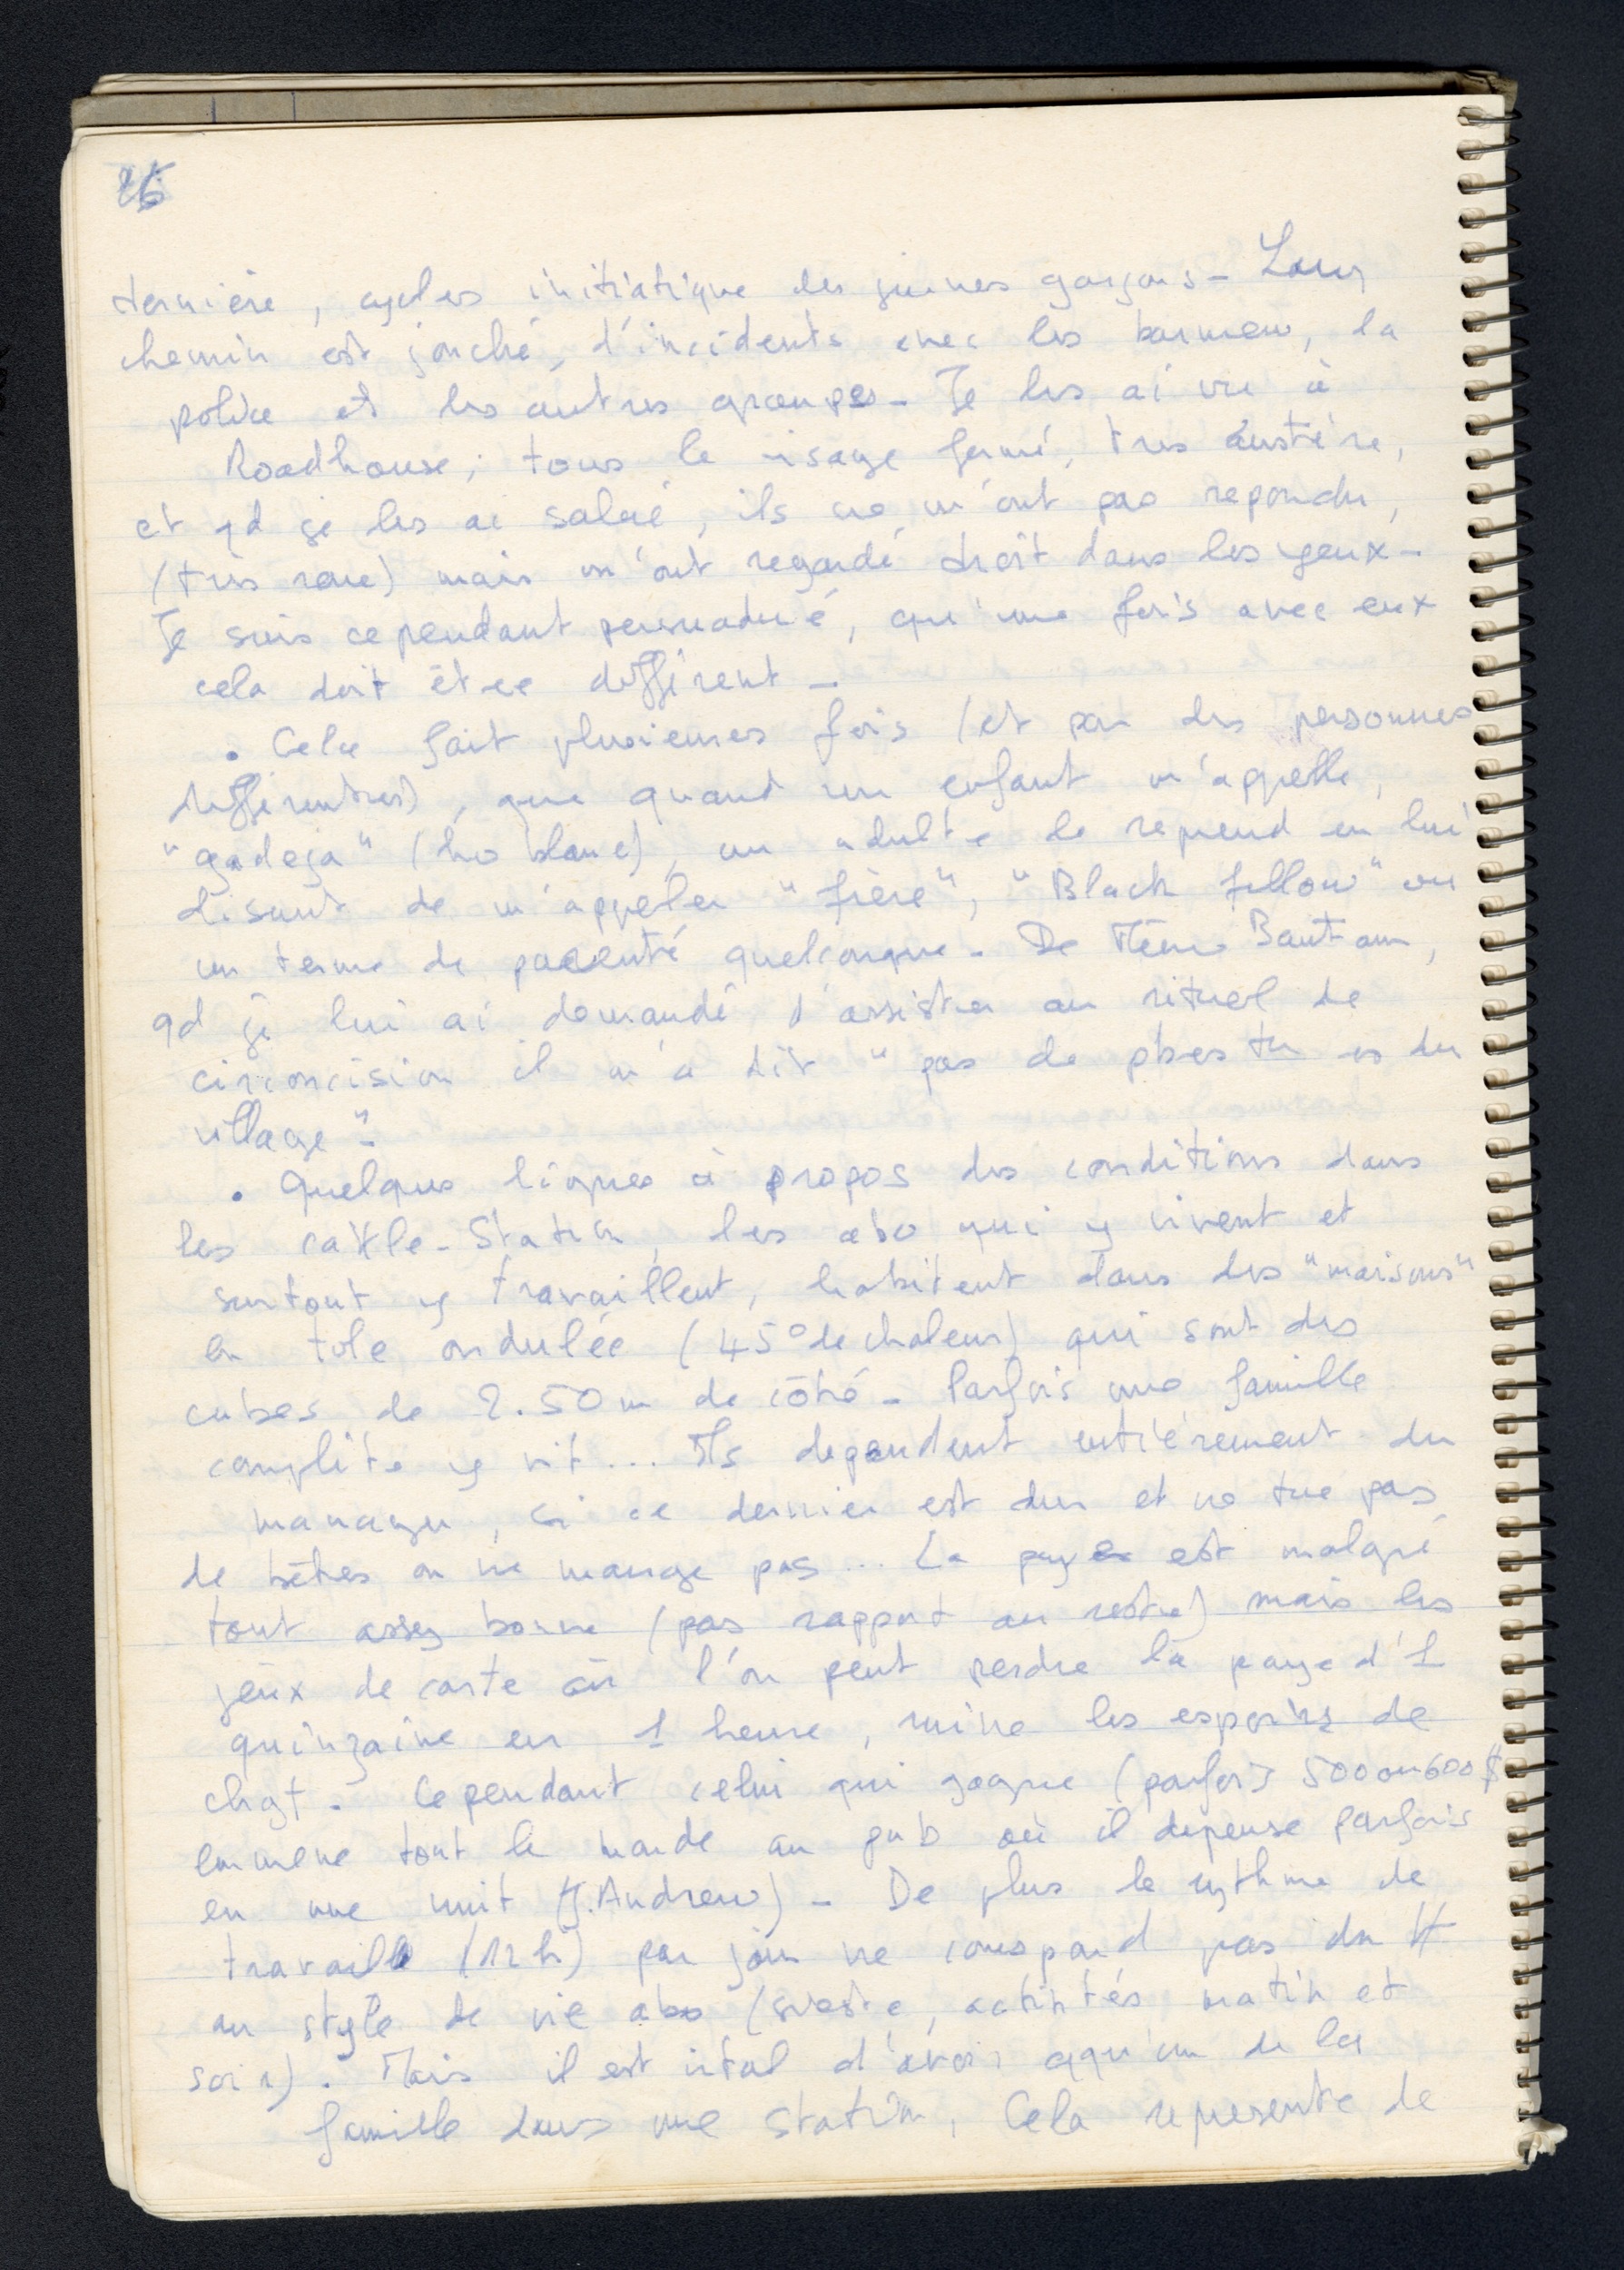 dernière, cycles initiatique des jeunes garçons - Leur
chemin est jonché, d'incidents avec les barmen, la
police et les autres groupes - Je les ai vu à
Roadhouse; tous le visage fermé, très austère,
et qd je les ai salué, ils ne m'ont pas repondu,
(très rare) mais m'ont regardé droit dans les yeux -
Je suis cependant persuadué, qu'une fois avec eux
cela doit être different -
. Cela fait plusieures fois (et par des personnes
differentes), que quand un enfant m'appelle,
"gadeja" (ho blanc), un adulte le reprend en lui
disant de m'appeler "frère", "Black fellow" ou
un terme de parenté quelconque - De même Bantam,
qd je lui ai demandé d'assister au rituel de
circoncision il m'a dit "pas de pbes tu es du
village" -
. Quelques lignes à propos des conditions dans
les cattle-Station, les abo qui y vivent et
surtout y travaillent, habitent dans des "maisons"
en tole ondulée (45° de chaleur) qui sont des
cubes de 2.50 m de côté - Parfois une famille
complète y vit ... Ils dependent entièrement du
manager, si ce dernier est dur et ne tue pas
de bêtes on ne mange pas ... La paye est malgré
tout assez bonne (pas rapport au reste) mais les
jeux de carte où l'on peut perdre la paye d'1
quinzaine en 1 heure, ruine les espoirs de
chgt. Cependant celui qui gagne (parfois 500 ou 600 $
emmene tout le monde au pub où il depense parfois
en une nuit (J. Andrew) - De plus le rythme de
travaille (12 h) par jour ne correspond pas du tt
au style de vie abo (sieste, activités matin et
soir). Mais il est vital d'avoir qqu'un de la
famille dans une station, Cela represente de